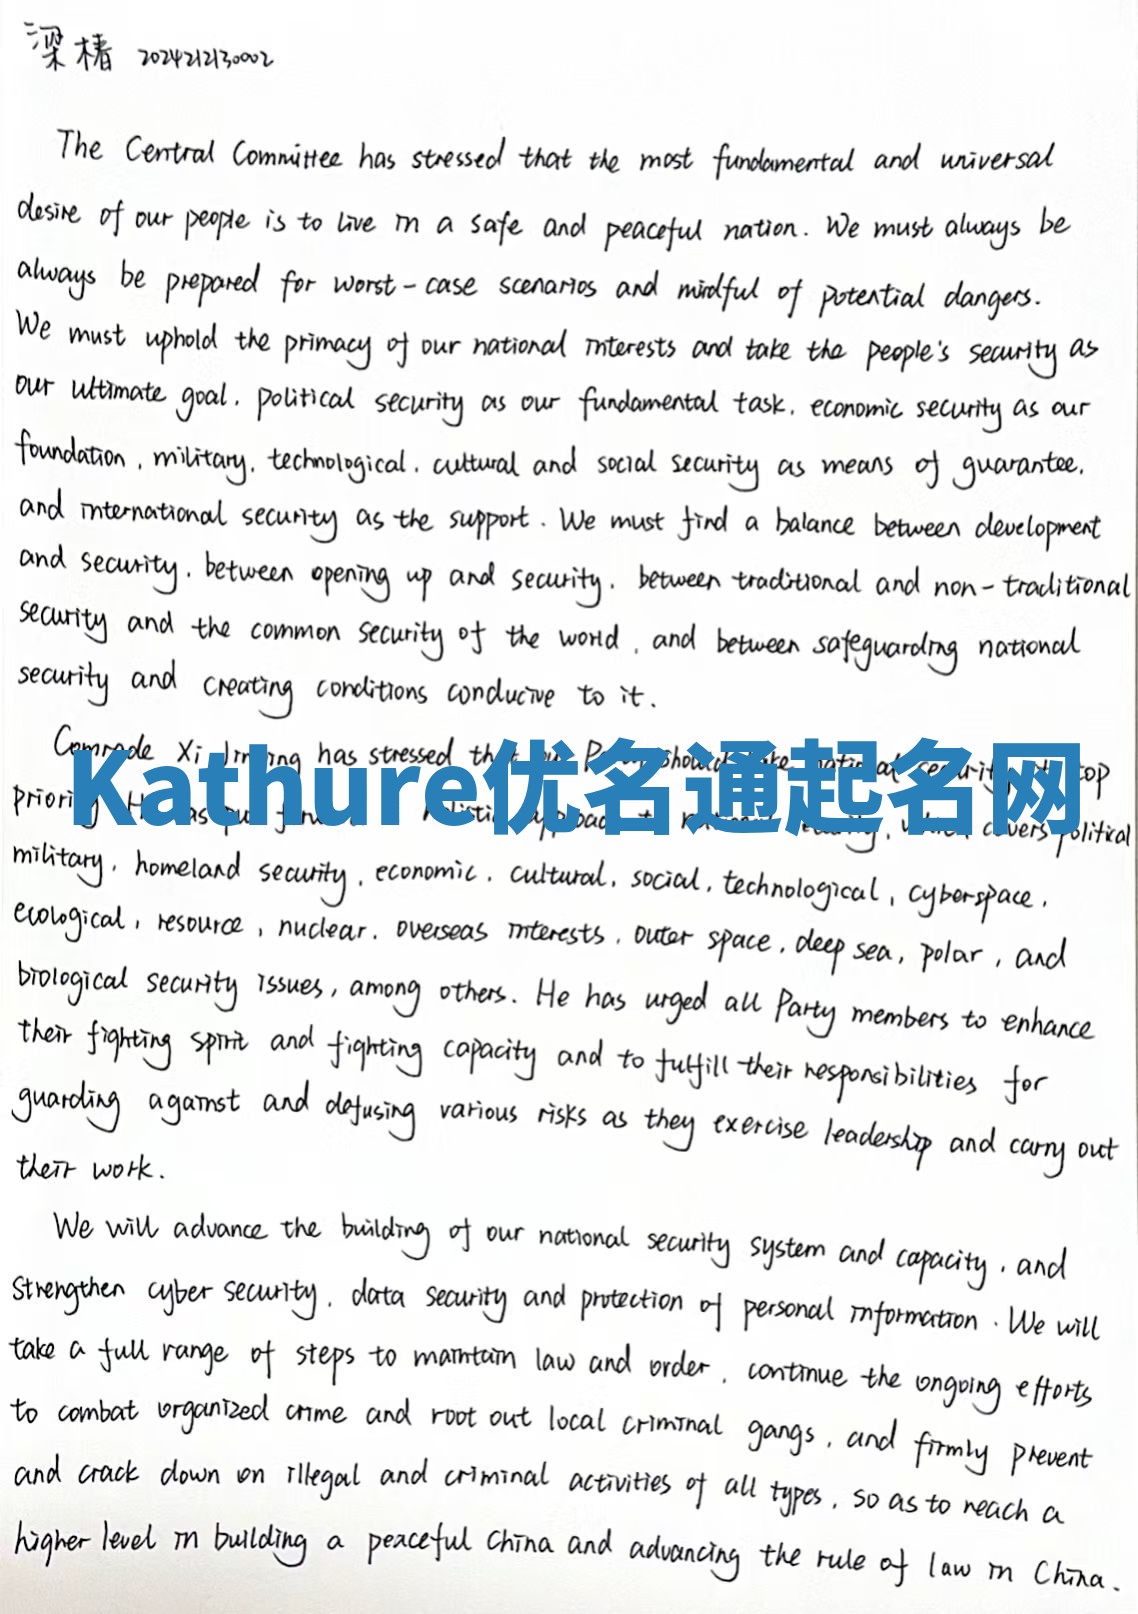 梁椿 2024212130002
The Central Committee has stressed that the most fundamental and universal
desire of our people is to live in a safe and peaceful nation. We must always be
always be prepared for worst-case scenarios and mindful of potential dangers.
We must uphold the primacy of our national interests and take the people's security as
our ultimate goal, political security as our fundamental task, economic security as our
foundation, military, technological, cultural and social security as means of guarantee,
and international security as the support. We must find a balance between development
and security, between opening up and security, between traditional and non-traditional
security and the common security of the world, and between safeguarding national
security and creating conditions conducive to it.
Comrade Xi Jinping has stressed that our Party should take national security as its top
Kathure优名通起名网
priority. He has put forward a holistic approach to national security, which covers political
military, homeland security, economic, cultural, social, technological, cyberspace,
ecological, resource, nuclear, overseas interests, outer space, deep sea, polar, and
biological security issues, among others. He has urged all Party members to enhance
their fighting spirit and fighting capacity and to fulfill their responsibilities for
guarding against and defusing various risks as they exercise leadership and carry out
their work.
We will advance the building of our national security system and capacity, and
strengthen cyber security, data security and protection of personal information. We will
take a full range of steps to maintain law and order, continue the ongoing efforts
to combat organized crime and root out local criminal gangs, and firmly prevent
and crack down on illegal and criminal activities of all types, so as to reach a
higher level in building a peaceful China and advancing the rule of law in China.